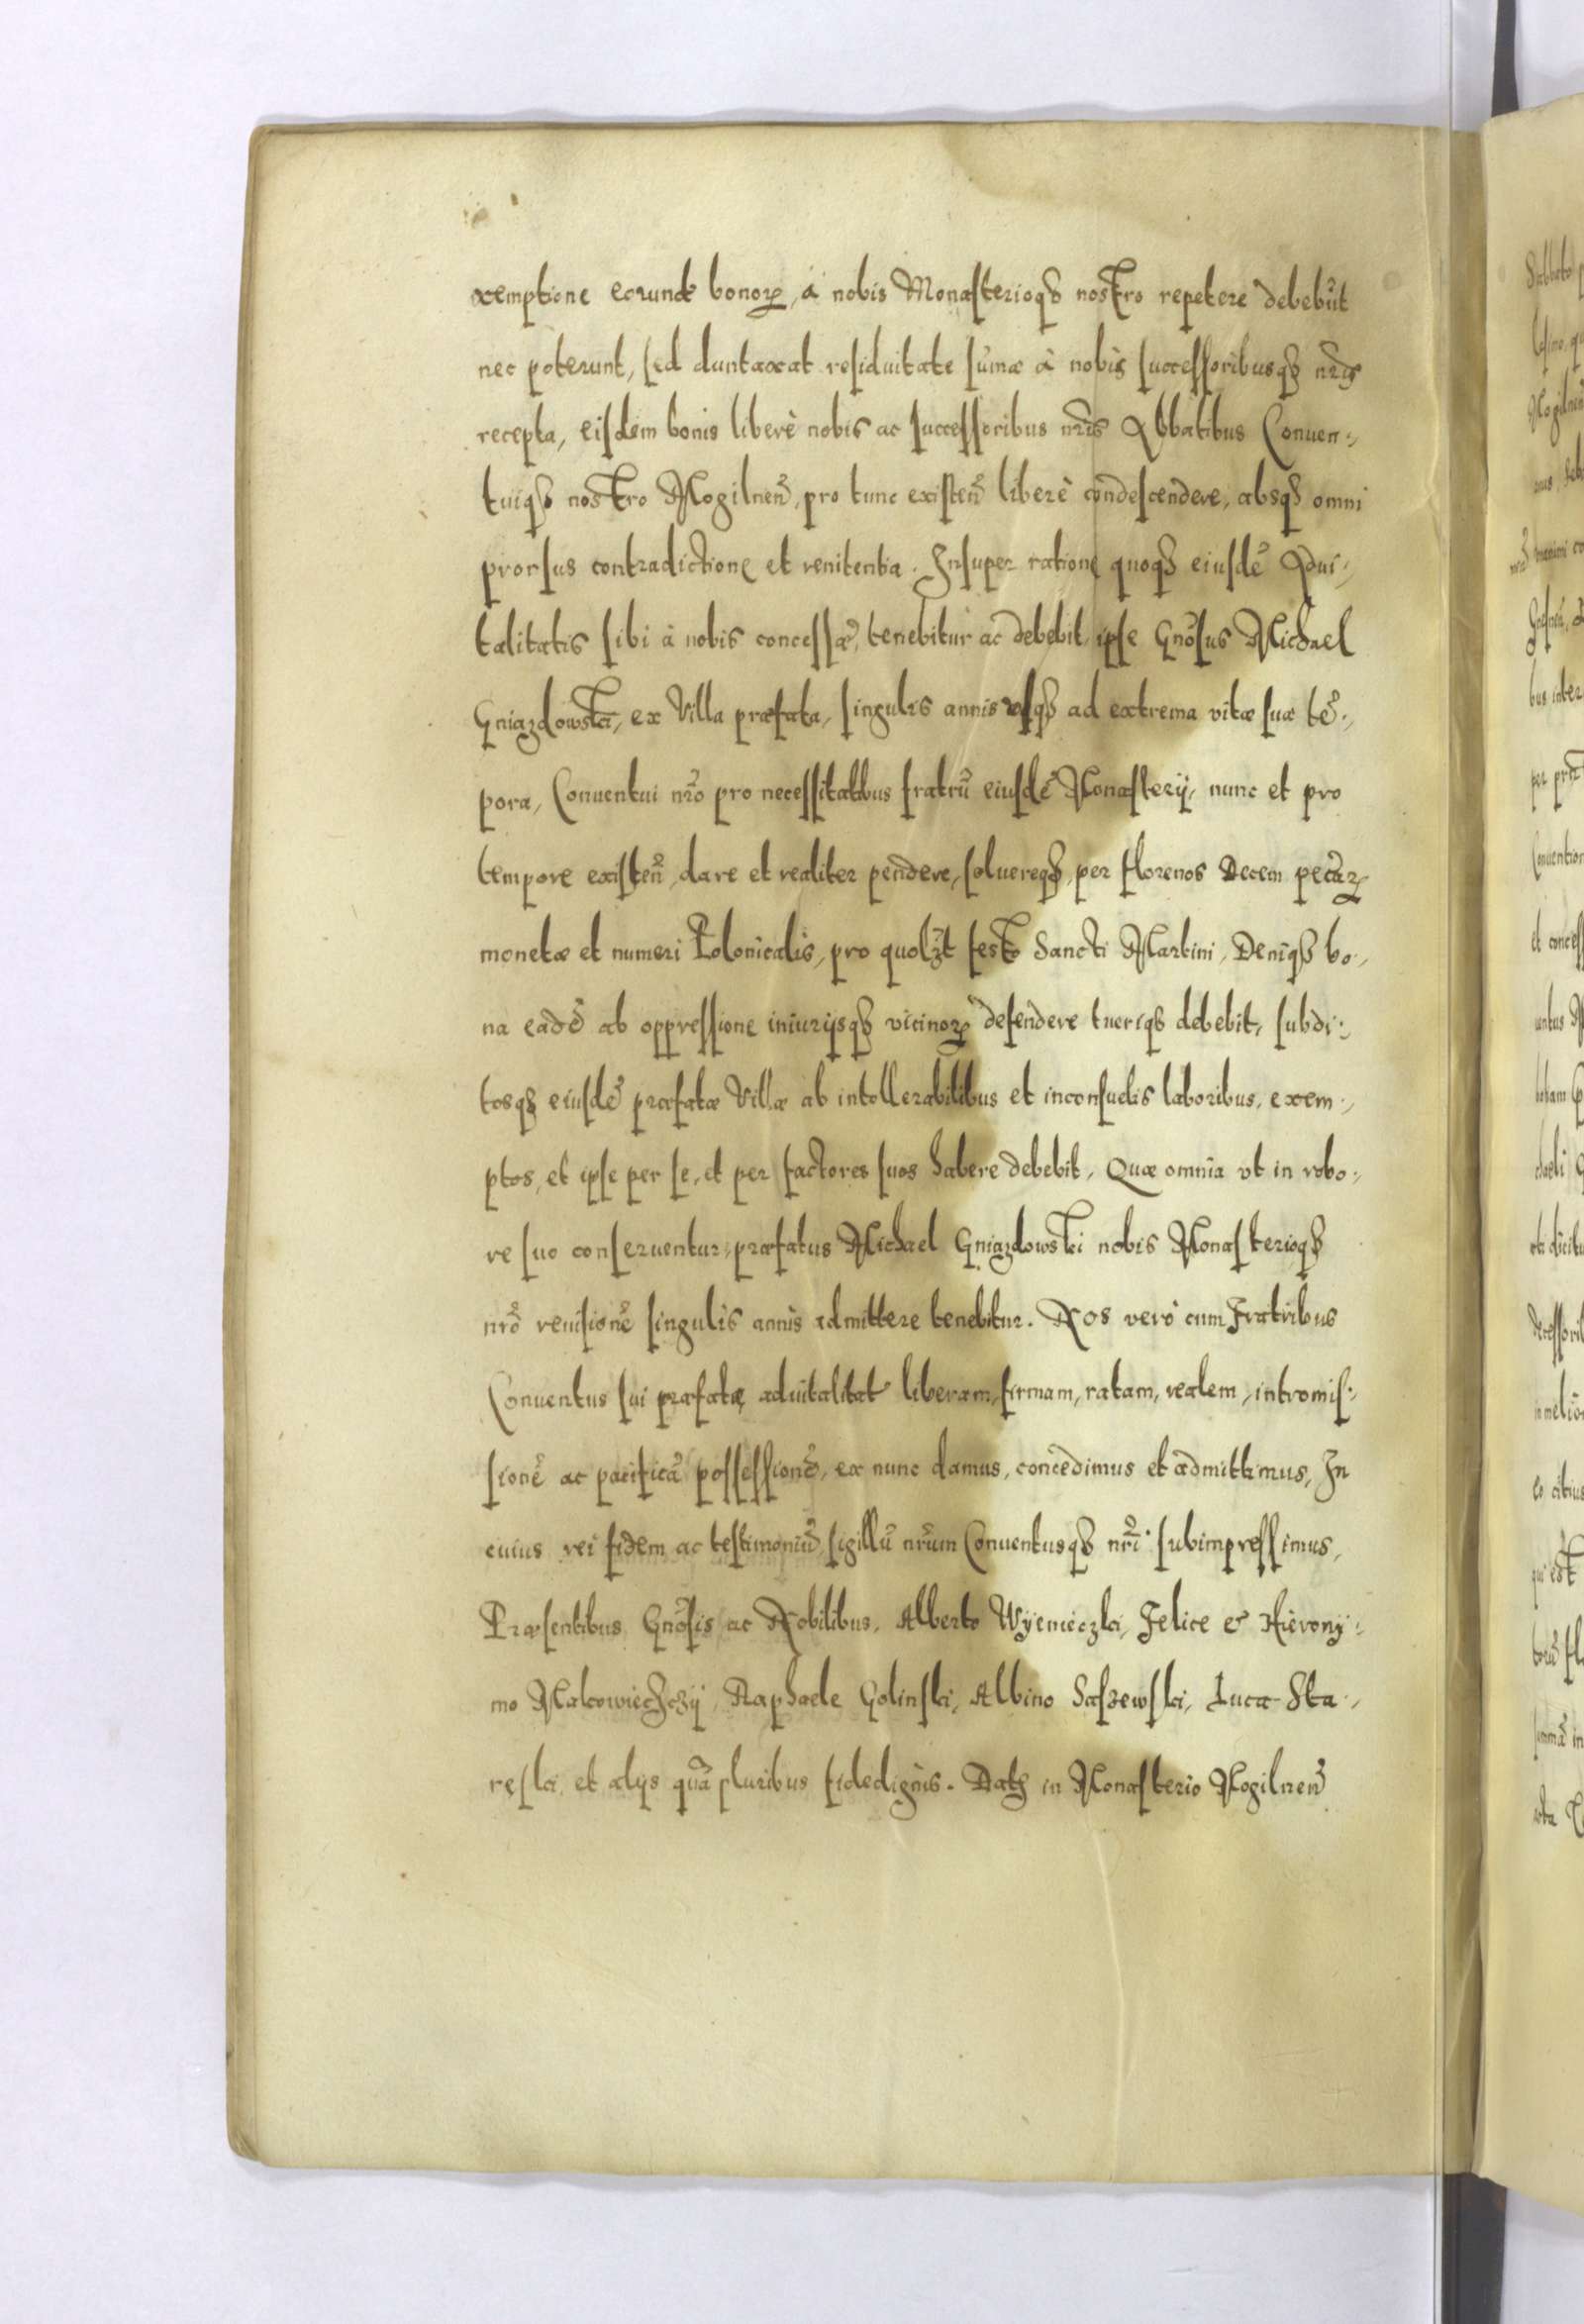 xemptione eorundē bonoꝝ, à nobis Monasterioqꝫ nostro repetere debebūt
nec poterunt, sed duntaxat residuitate sum̄æ à nobis successoribusqꝫ nr̄is
recepta, eisdem bonis liberè nobis ac successoribus nr̄is Abbatibus Conuen-,
tuiqꝫ nostro Mogilnen̄, pro tunc existen̄ liberè condescendere, absqꝫ omni
prorsus contradictione et renitentia. Insuper ratione quoqꝫ eiusdē Adui-,
talitatis sibi à nobis concessæ, tenebitur ac debebit ipse Gnōsus Michael
Gniazdowski, ex Villa præfata, singulis annis vsqꝫ ad extrema vitæ suæ tē-,
pora, Conuentui nr̄o pro necessitatibus fratrū eiusdē Monasterij, nunc et pro
tempore existen̄, dare et realiter pendere, soluereqꝫ, per florenos Decem pecūaꝝ
monetæ et numeri Polonicalis, pro quolꝫt festo Sancti Martini, Deniqꝫ bo-,
na eadē ab oppressione iniurijsqꝫ vicinoꝝ defendere tueriqꝫ debebit, subdi-,
tosqꝫ eiusdē præfatæ Villæ ab intollerabilibus et inconsuetis laboribus, exem-,
ptos, et ipse per se, et per factores suos habere debebit, Quæ omnia vt in robo-,
re suo conseruentur, præfatus Michael Gniazdowski nobis Monasterioqꝫ
nr̄o reuisionē singulis annis admittere tenebitur. Nos verò cum Fratribus
Conuentus sui præfatæ aduitalitat̄ liberam, firmam, ratam, realem, intromis-,
sionē ac pacificā possessionē, ex nunc damus, concedimus et admittimus, In
cuius rei fidem ac testimoniū, sigillū nr̄um Conuentusqꝫ nr̄i subimpressimus,
Præsentibus Gnōsis ac Nobilibus, Alberto Wyenieczki, Felice & Hierony-,
mo Malcowiechczij, Raphaele Golinski, Albino Saszewski, Luca Sta-,
reski, et alijs quā pluribus fidedignis. Datꝫ in Monasterio Mogilnen̄